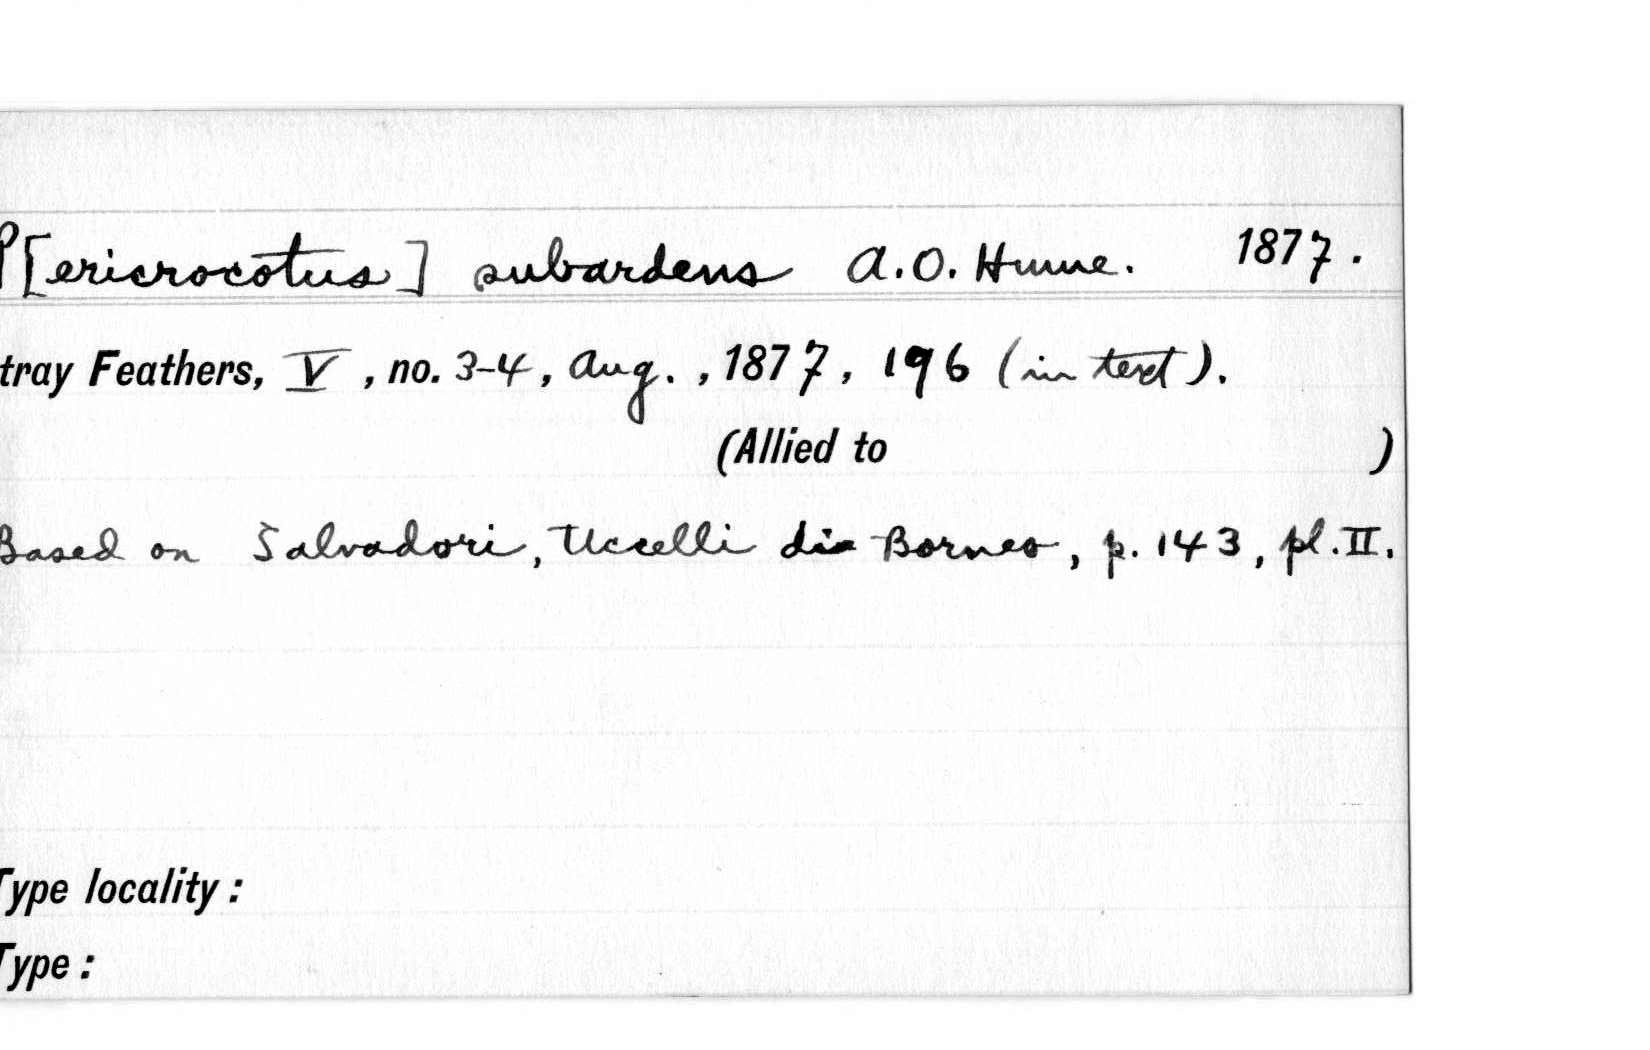 P[ericrocotus] subardens A.O. Hume. 1877.
tray Feathers, V, no. 3-4, Aug., 1877, 196 (in text).
(Allied to )
Based on Salvadori, Uccelli di Borneo, p. 143, pl. II.
Type locality:
Type: